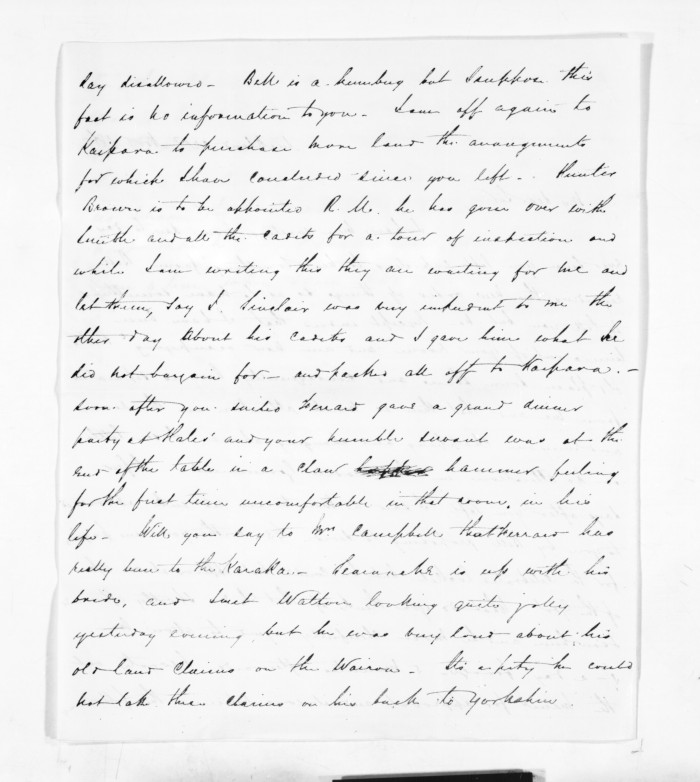 say disallowed - Bell is a humbug but I suppose this
fact is no information to you - I am off again to
Kaipara to purchase more land the arrangements
for which I have concluded since you left - Hunter
Brown is to be appointed R. M. he has gone over with
Smith and all the cadets for a tour of inspection and
while I am writing this they are waiting for me and
let them, say I. Sinclair was very impudent to me the
other day about his cadets and I gave him what he
did not bargain for - and packed all off to Kaipara. -
soon after you sailed Ferrard gave a grand dinner
party at Hales' and your humble servant was at the
end of the table in a claw hammer feeling
for the first time uncomfortable in that room, in his
life - Will you say to Mrs Campbell that Ferrard has
really been to the Karaka - is up with his
bride, and I met Walton looking quite jolly
yesterday evening but he was very loud about his
old land claims on the Wairoa - Its a pity he could
not take these claims on his back to Yorkshire.